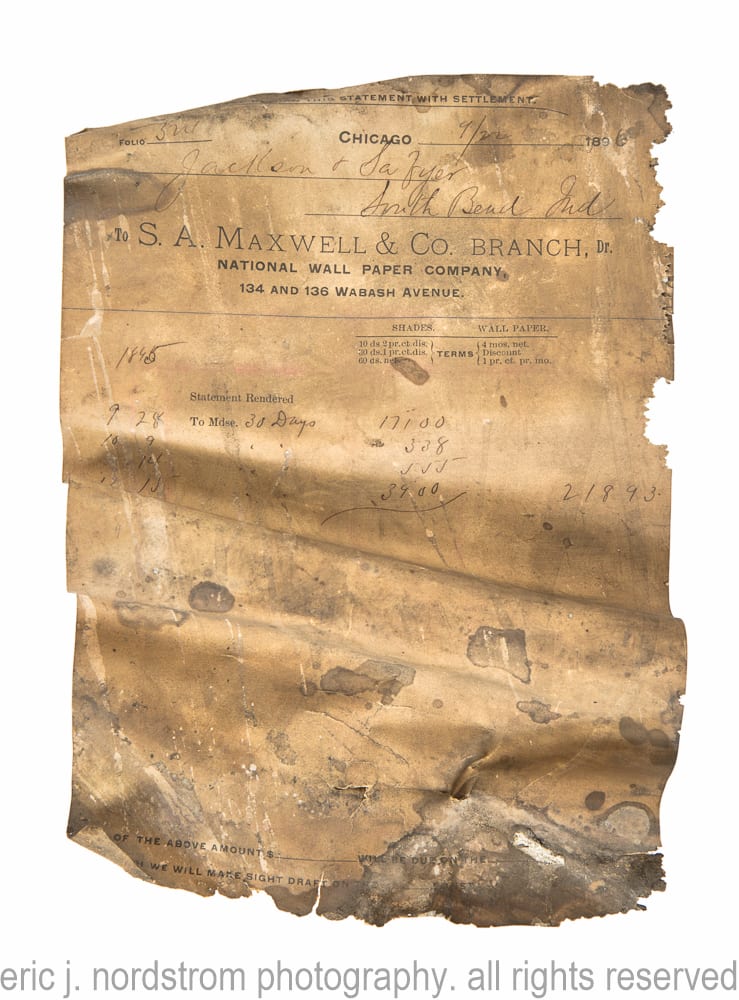 THIS STATEMENT WITH SETTLEMENT.
FOLIO CHICAGO 1896
Jackson &
South Bend Ind
To S. A. MAXWELL & CO. BRANCH, Dr.
NATIONAL WALL PAPER COMPANY,
134 AND 136 WABASH AVENUE.
SHADES. WALL PAPER.
10 ds 2 pr. ct. dis. 4 mos. net.
30 ds. 1 pr. ct. dis. TERMS Discount
60 ds. net 1 pr. ct. pr. mo.
1895
Statement Rendered
9 28 To Mdse. 30 Days 171 00
10 9 " 3 38
14 5 55
15 39 00 218 93
OF THE ABOVE AMOUNT $ WILL BE DUE ON THE
WE WILL MAKE SIGHT DRAFT ON
eric j. nordstrom photography. all rights reserved